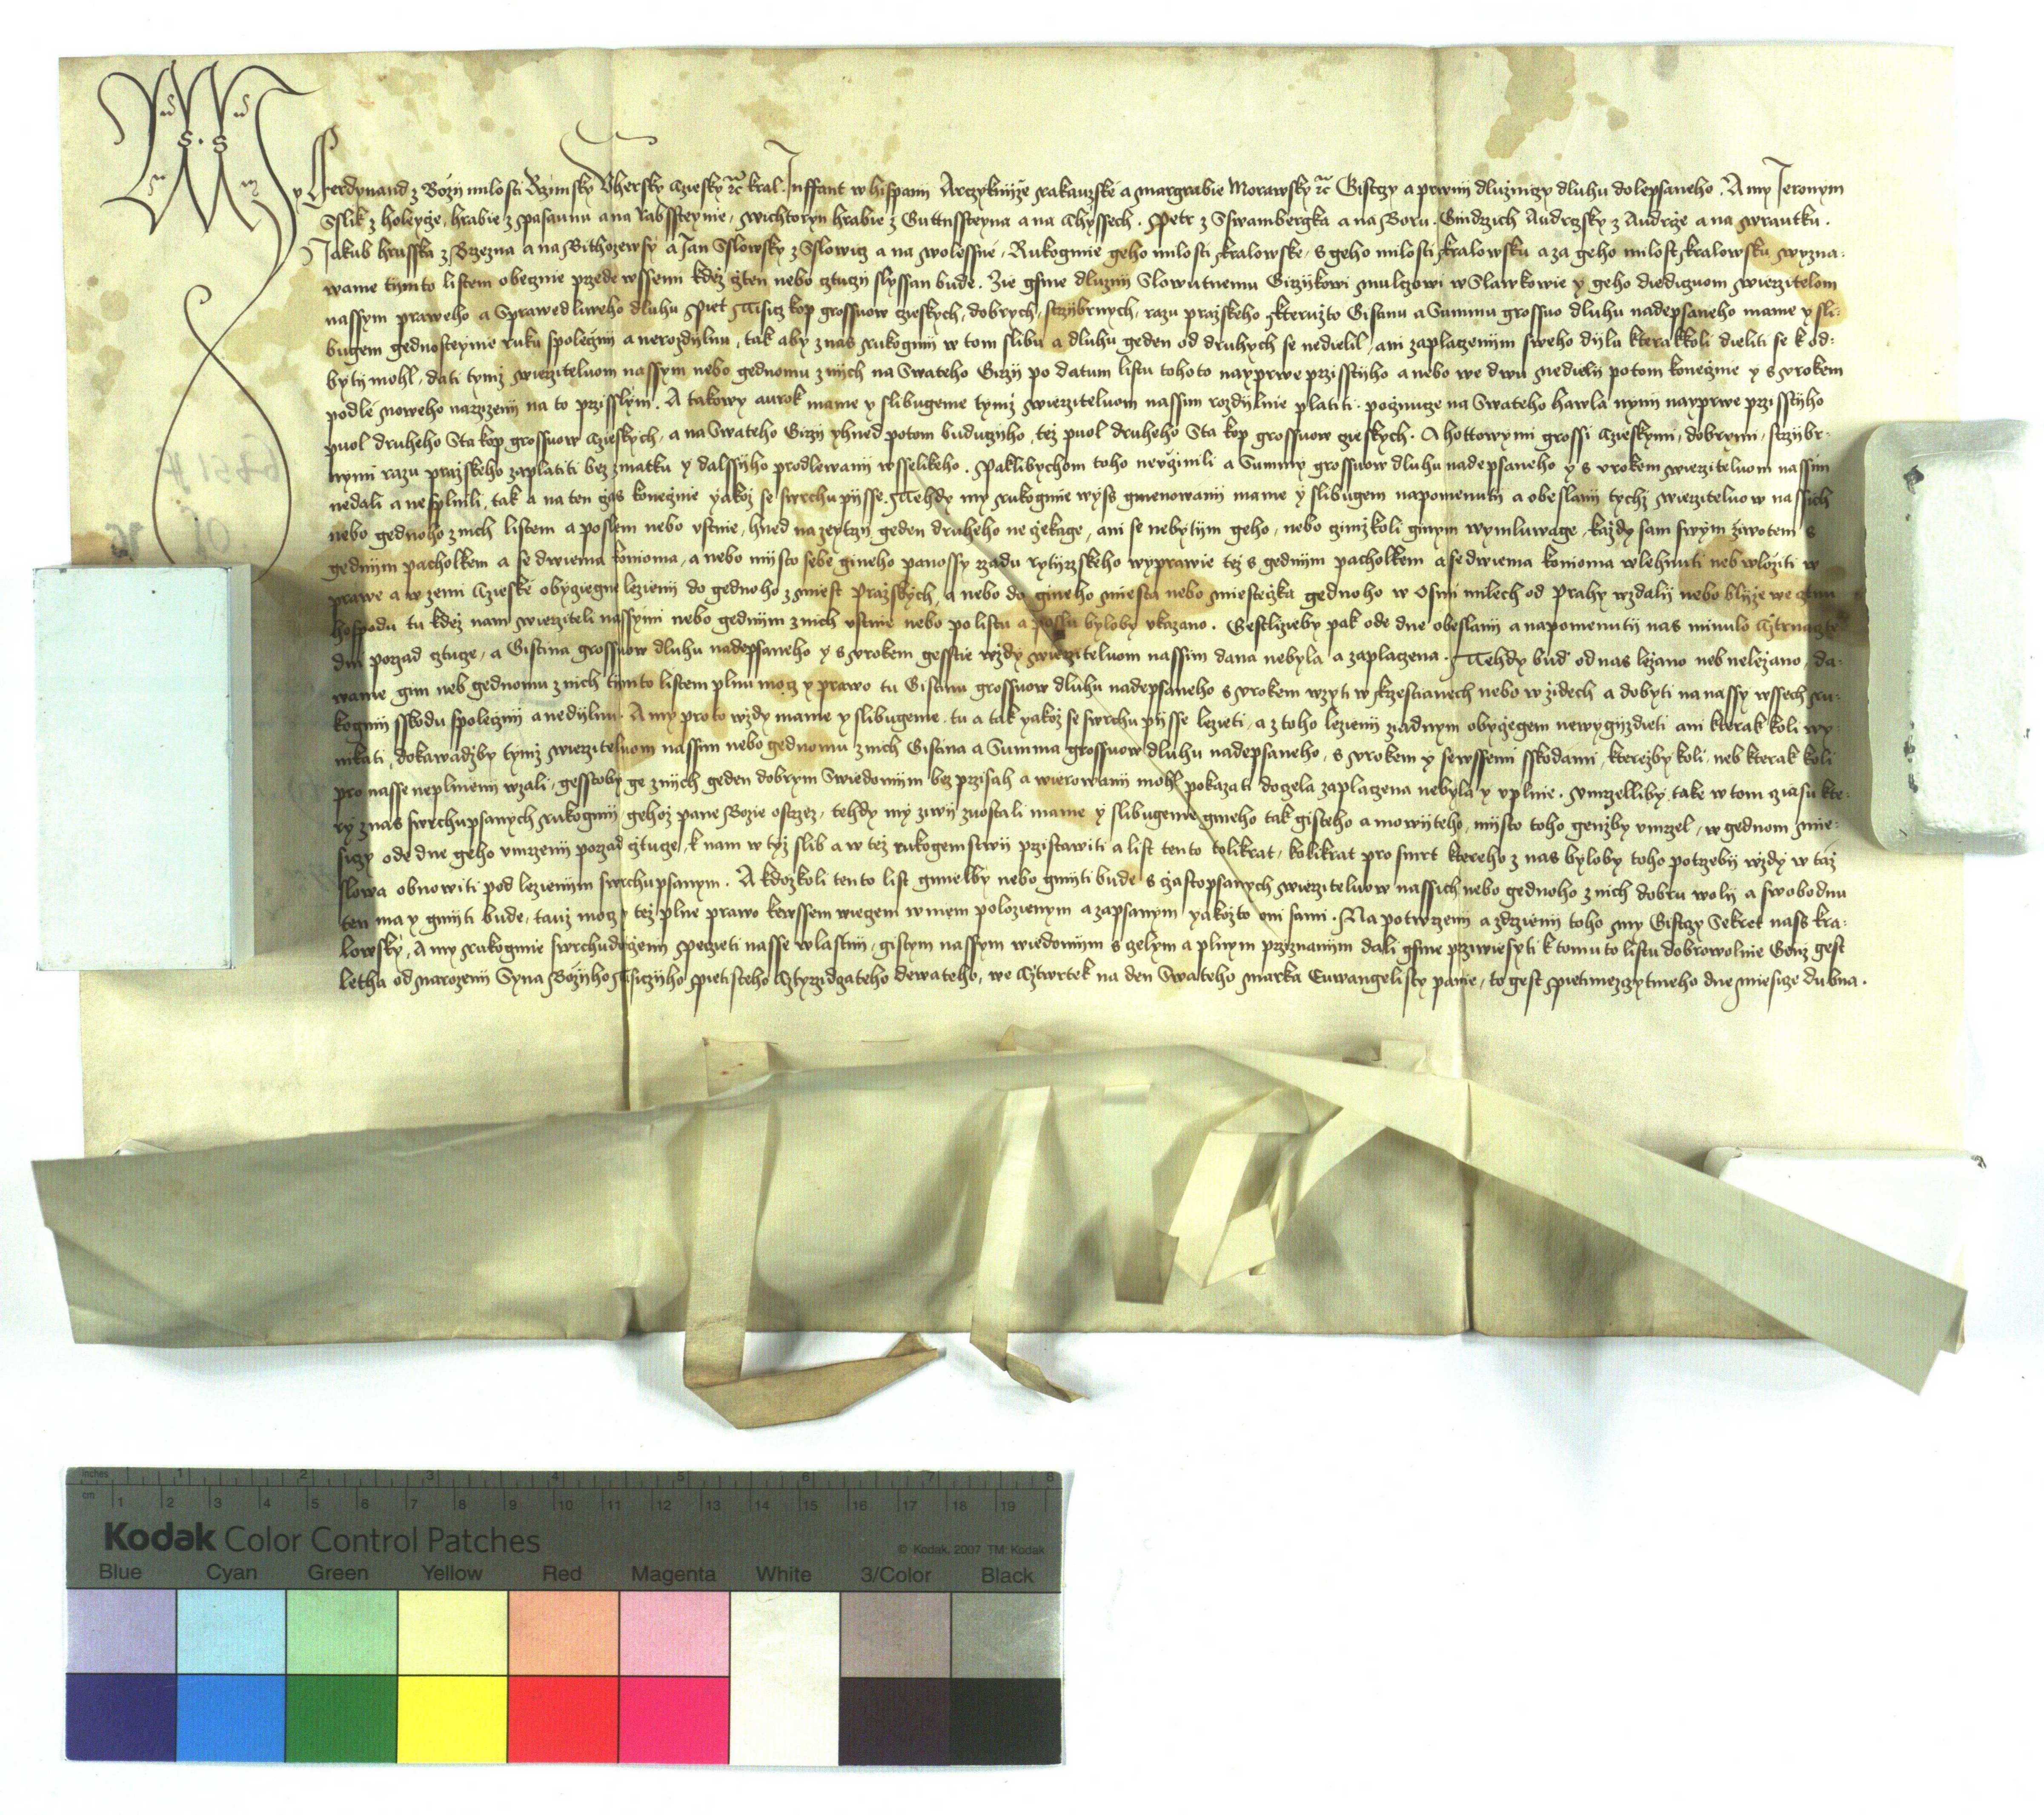 My Ferdynand z Bozij milosti Rzimsky Vhersky Cziesky ꝛc̃ kral. Inffant w hispanij Arczyknijze rakauzske a margrabie Morawsky ꝛc̃ Gistczy a prwnij dluznijczy dluhu dolepsaneho. A my Jeronym
Sslik z holeycze, hrabie z pasaunu a na rabssteynie, wichtoryn hrabie z Guttnssteyna a na Chyssech. Petr z Sswambergka a na Boru. Gindrzich Audrczsky z Audrcze a na
Jakub hrusska z Brzezna a na Bithozewsy a Jan Sslowsky z Sslowicz a na wolessne, Rukogmie geho milosti kralowske, s geho milosti kralowsku a za geho milost kralowsku wyzna-
wame tijmto listem obecznie przede wssemi kdez cten nebo cztuczy slyssan bude. Zie gsme dluznij Slowutnemu Girzikowi w Slawkowie y geho diediczuom wierzitelom
nassym praweho a Sprawedliweho dluhu Piet Tisicz kop grossuow czieskych, dobrych, strzijbrnych, razu prazskeho kteruzto Gistinu a Summu grossuo dluhu nadepsaneho mame y sli-
bugem gednosteynie ruku spolecznij a nerozdijlnu, tak aby z nas rukogmij w tom slibu a dluhu geden od druhych se nedielil, ani zaplaczenijm sweho dijlu kterakkoli dieliti se k od-
bytij mohl, dati tymz wierziteluom nassym nebo gednomu z nijch na Swateho Girzij po datum listu tohoto nayprwe przisstijho a nebo we dwu nedielij potom konecznie y s vrokem
podle noweho narzizenij na to przisslym. A takowy aurok mame y slibugeme tymz wierziteluom nassim rozdijlnie platiti. pocznucze na Swateho hawla nynij nayprwe przisstijho
puol druheho Sta kop grossuow Czieskych, a na Swateho Girzij yhned potom buduczijho, tez puol druheho Sta kop grossuow czieskych. A hottowymi grossi Czieskymi, dobrymi, strzijbr-
nymi razu prazskeho zaplatiti bez zmatku y dalssijho prodlewanij wsselikeho. Paklibychom toho nevczinili a Summy grossuow dluhu nadepsaneho y s vrokem wierziteluom nassim
nedali a nesplnili, tak a na ten czas konecznie yakoz se swrchu pijsse, Tehdy my rukogmie wyss gmenowanij mame y slibugem napomenuti a obeslanij tychz wierziteluow nassich
nebo gednoho z nich listem a poslem nebo vstnie, hned na zeytrzij geden druheho ne czekage, ani se nebytijm geho, nebo czimzkoli ginym wymluwage, kazdy sam swym ziwotem s
gednijm pacholkem a se dwiema konioma, a nebo mijsto sebe gineho panossy rzadu rytijrzskeho wyprawie tez s gednijm pacholkem a se dwiema konioma wlehnuti neb wloziti w
prawe a w zemi Czieske obyczegne lezienij do gednoho z miest Prazskych, a nebo do gineho miesta nebo miesteczka gednoho w Osmi milech od Prahy wzdalij nebo blijze we cztnu
hospodu tu kdez nam wierziteli nassymi nebo gednijm z nich vstnie nebo po listu a poslu byloby vkazano. Gestlizieby pak ode dne obeslanij a napomenutij nas minulo Cztrnaczte
dni porzad cztucze, a Gistina grossuow dluhu nadepsaneho y s vrokem gesstie wzdy wierziteluom nassim dana nebyla a zaplaczena. Tehdy bud od nas lezano neb nelezano, da-
wame gim neb gednomu z nich tijmto listem plnu mocz y prawo tu Gistinu grossuow dluhu nadepsaneho s vrokem wzyti w krzestianech nebo w zidech a dobyti na nassy wssech ru-
kogmij sskodu spolecznij a nedijlnu. A my proto wzdy mame y slibugeme, tu a tak yakoz se swrchu pijsse lezieti, a z toho lezienij ziadnym obyczegem newygijzdieti ani kterak koli wy-
nikati, dokawadzby tymz wierziteluom nassim nebo gednomu z nich Gistina a Summa grossuow dluhu nadepsaneho, s vrokem y sewssemi sskodami, kterezby koli, neb kterak koli
pro nasse neplnienij wzali, gesstoby ge z nijch geden dobrym Swiedomijm bez przisah a wierowanij mohl pokazati doczela zaplaczena nebyla y vplnie. Vmrzelliby take w tom cziasu kte-
ry z nas swrchupsanych rukogmij, gehoz pane Bozie ostrzez, tehdy my ziwij zuostali mame y slibugeme gineho tak gisteho a mowijteho, mijsto toho genzby vmrzel, w gednom mie-
siczy ode dne geho vmrzenij porzad cztucze, k nam w tyz slib a w tez rukogemstwij przistawiti a list tento tolikrat, kolikrat pro smrt ktereho z nas byloby toho potrzebij wzdy w taz
slowa obnowiti pod lezienijm swrchupsanym. A kdozkoli tento list gmielby nebo gmijti bude s czastopsanych wierziteluow nassich nebo gednoho z nich dobru wolij a swobodnu
ten ma y gmijti bude, tauz mocz y tez plne prawo kewssem wieczem w niem polozienym a zapsanym yakozto oni sami. Na potwrzenij a zdrzienij toho my Gistczy Sekret nass kra-
lowsky, A my rukogmie swrchudoticzenij peczieti nasse wlastnij, gistym nassym wiedomijm s czelym a plnym przyznanijm dali gsme przywiesyti k tomuto listu dobrowolnie Genz gest
Letha od narozenij Syna Bozijho Tisiczijho pietisteho Cztyrzidczateho dewateho, we Cztwrtek na den Swateho Marka Ewangelisty panie, to gest pietmezczytmeho dne miesicze dubna.
Kodak Color Control Patches
© Kodak, 2007 TM: Kodak
Blue Cyan Green Yellow Red Magenta White 3/Color Black